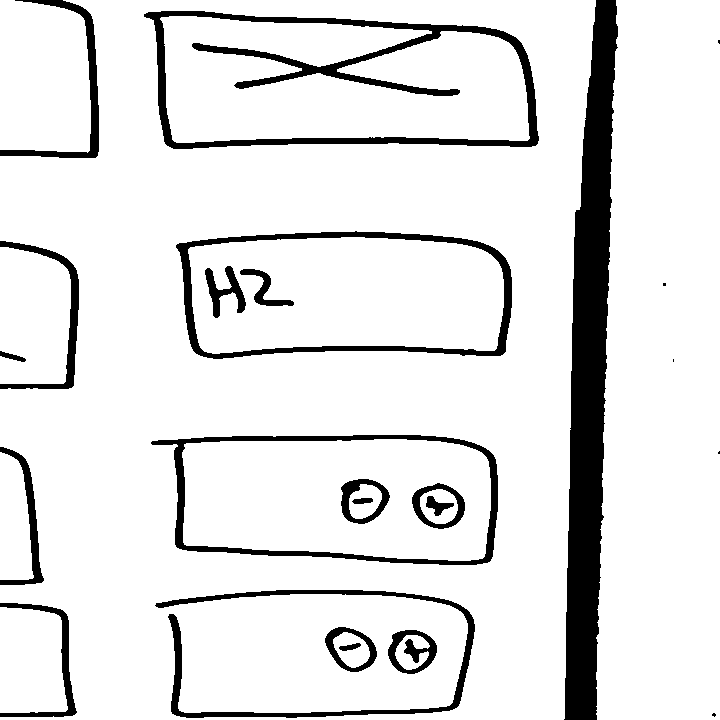 H2
- +
- +